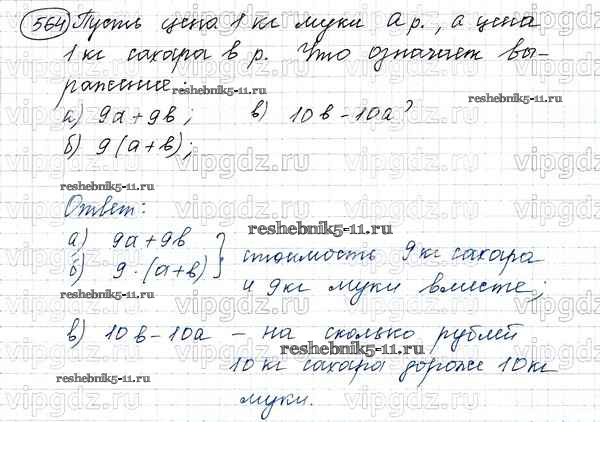 564 Пусть цена 1 кг муки a р., а цена
1 кг сахара в р. Что означает вы-
ражение:
reshebnik5-11.ru
reshebnik5-11.ru
а) 9a+9в; в) 10в-10a?
б) 9(a+в);
vipgdz.ru vipgdz.ru vipgdz.ru
reshebnik5-11.ru
Ответ:
reshebnik5-11.ru
а) 9a+9в
б) 9·(a+в) } стоимость 9 кг сахара
и 9 кг муки вместе;
reshebnik5-11.ru
в) 10в-10a – на сколько рублей
reshebnik5-11.ru
10 кг сахара дороже 10 кг
reshebnik5-11.ru
муки.
vipgdz.ru vipgdz.ru vipgdz.ru